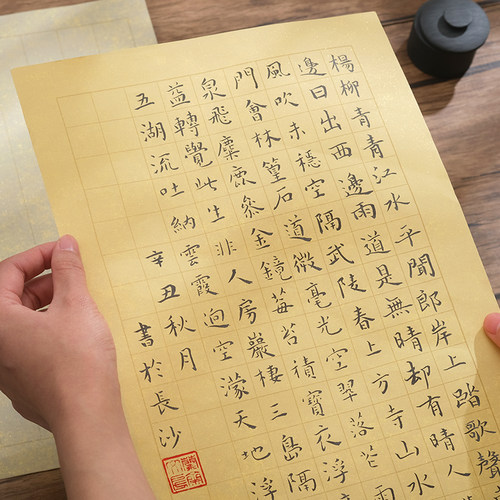 楊柳青青江水平聞郎岸上踏歌聲
邊日出西邊雨道是無晴却有晴人
風吹未穩空隔武陵春上方寺山水
門會林篁石道微毫光空翠落花
泉飛麋鹿參金鏡莓苔積寶衣浮
益轉覺此生非人房巖棲三島隔
五湖流吐納雲霞迥空濛天地浮
辛丑秋月
書於長沙